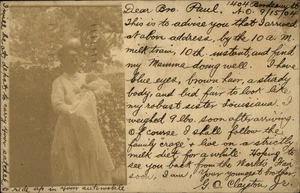 Dear Bro. Paul,
N.O. 9/15/04
This is to advise you that I arrived
at above address, by the 10 a.m.
milk train, 10th instant, and find
my Mamma doing well. I have
blue eyes, brown hair, a steady
body, and bid fair to look like
my robust sister Louisiana. I
weighed 9 lbs. soon after arriving.
Of course I shall follow the
family craze & live on a strictly
milk diet, for a while. Hoping to
see you back from the World's Fair
soon, I am, Your youngest brother,
G. O. Clayton, Jr.
ride up in your automobile